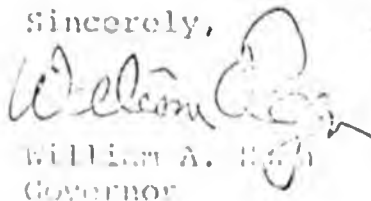 Sincerely,
William
William A.
Governor